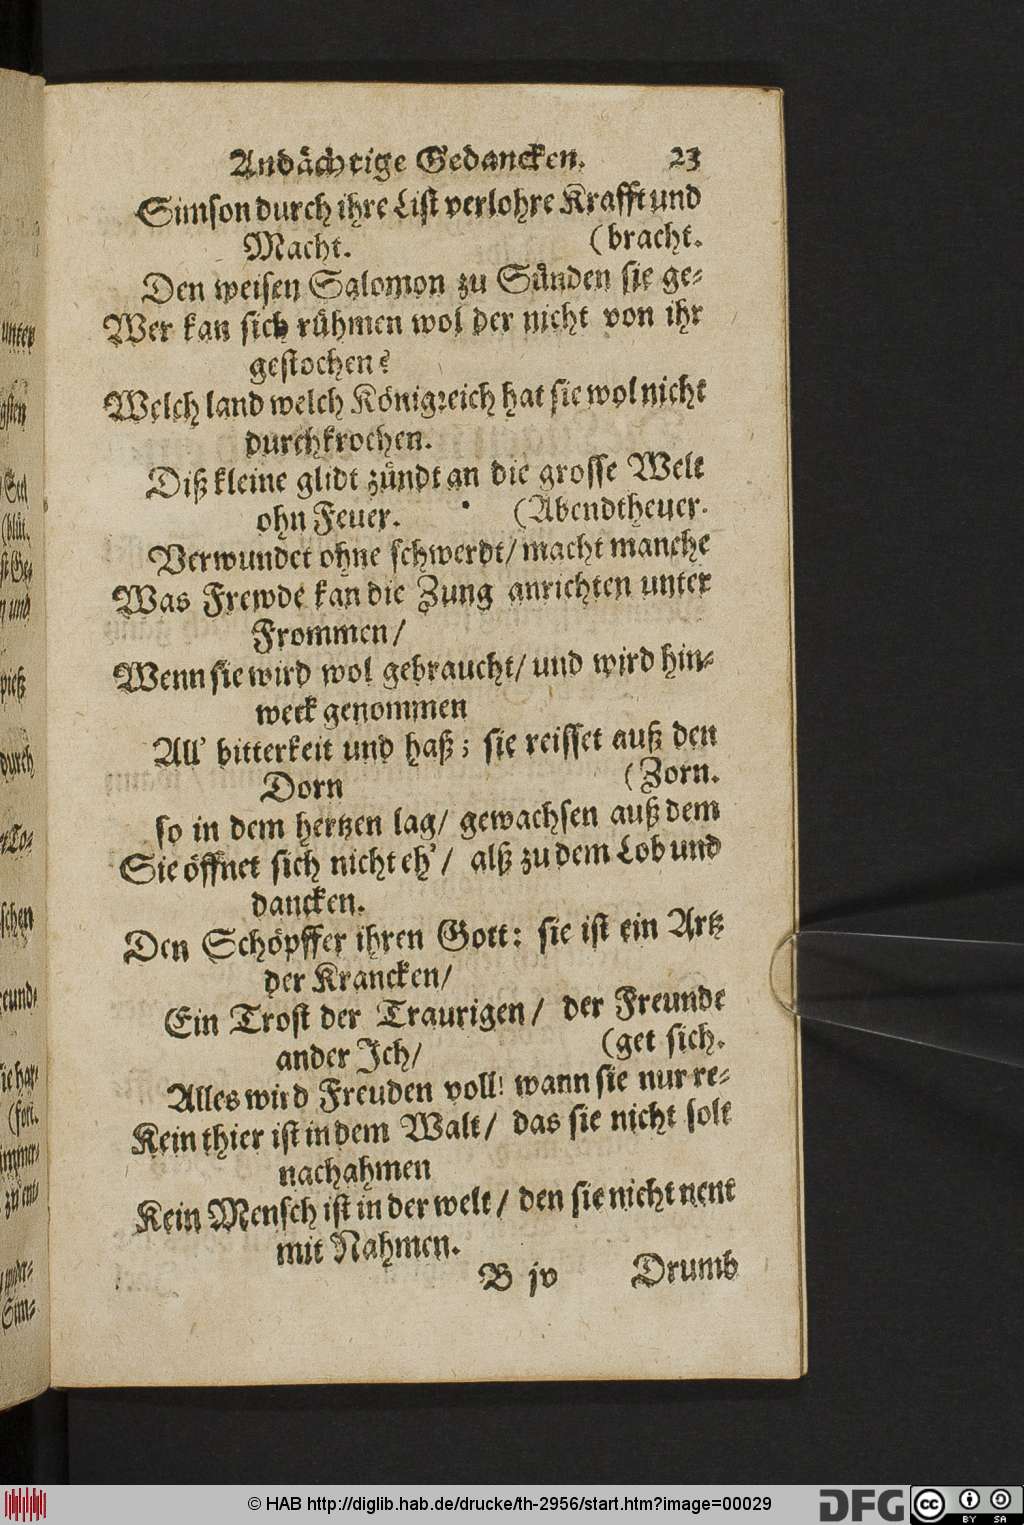 Andächtige Gedancken. 23
Simson durch ihre List verlohre Krafft und
Macht. (bracht.
Den weisen Salomon zu Sünden sie ge-
Wer kan sich rühmen wol der nicht von ihr
gestochen?
Welch land welch Königreich hat sie wol nicht
durchkrochen.
Diß kleine glidt zündt an die grosse Welt
ohn Feuer. (Abendtheuer.
Verwundet ohne schwerdt/ macht manche
Was Frewde kan die Zung anrichten unter
Frommen/
Wenn sie wird wol gebraucht/ und wird hin-
weck genommen
All' bitterkeit und haß; sie reisset auß den
Dorn (Zorn.
so in dem hertzen lag/ gewachsen auß dem
Sie öffnet sich nicht eh'/ alß zu dem Lob und
dancken.
Den Schöpffer ihren Gott: sie ist ein Artz
der Krancken/
Ein Trost der Traurigen/ der Freunde
ander Ich/ (get sich.
Alles wird Freuden voll! wann sie nur re-
Kein thier ist in dem Walt/ das sie nicht solt
nachahmen
Kein Mensch ist in der welt/ den sie nicht nent
mit Nahmen.
B jv Drumb
© HAB http://diglib.hab.de/drucke/th-2956/start.htm?image=00029
DFG
cc BY SA